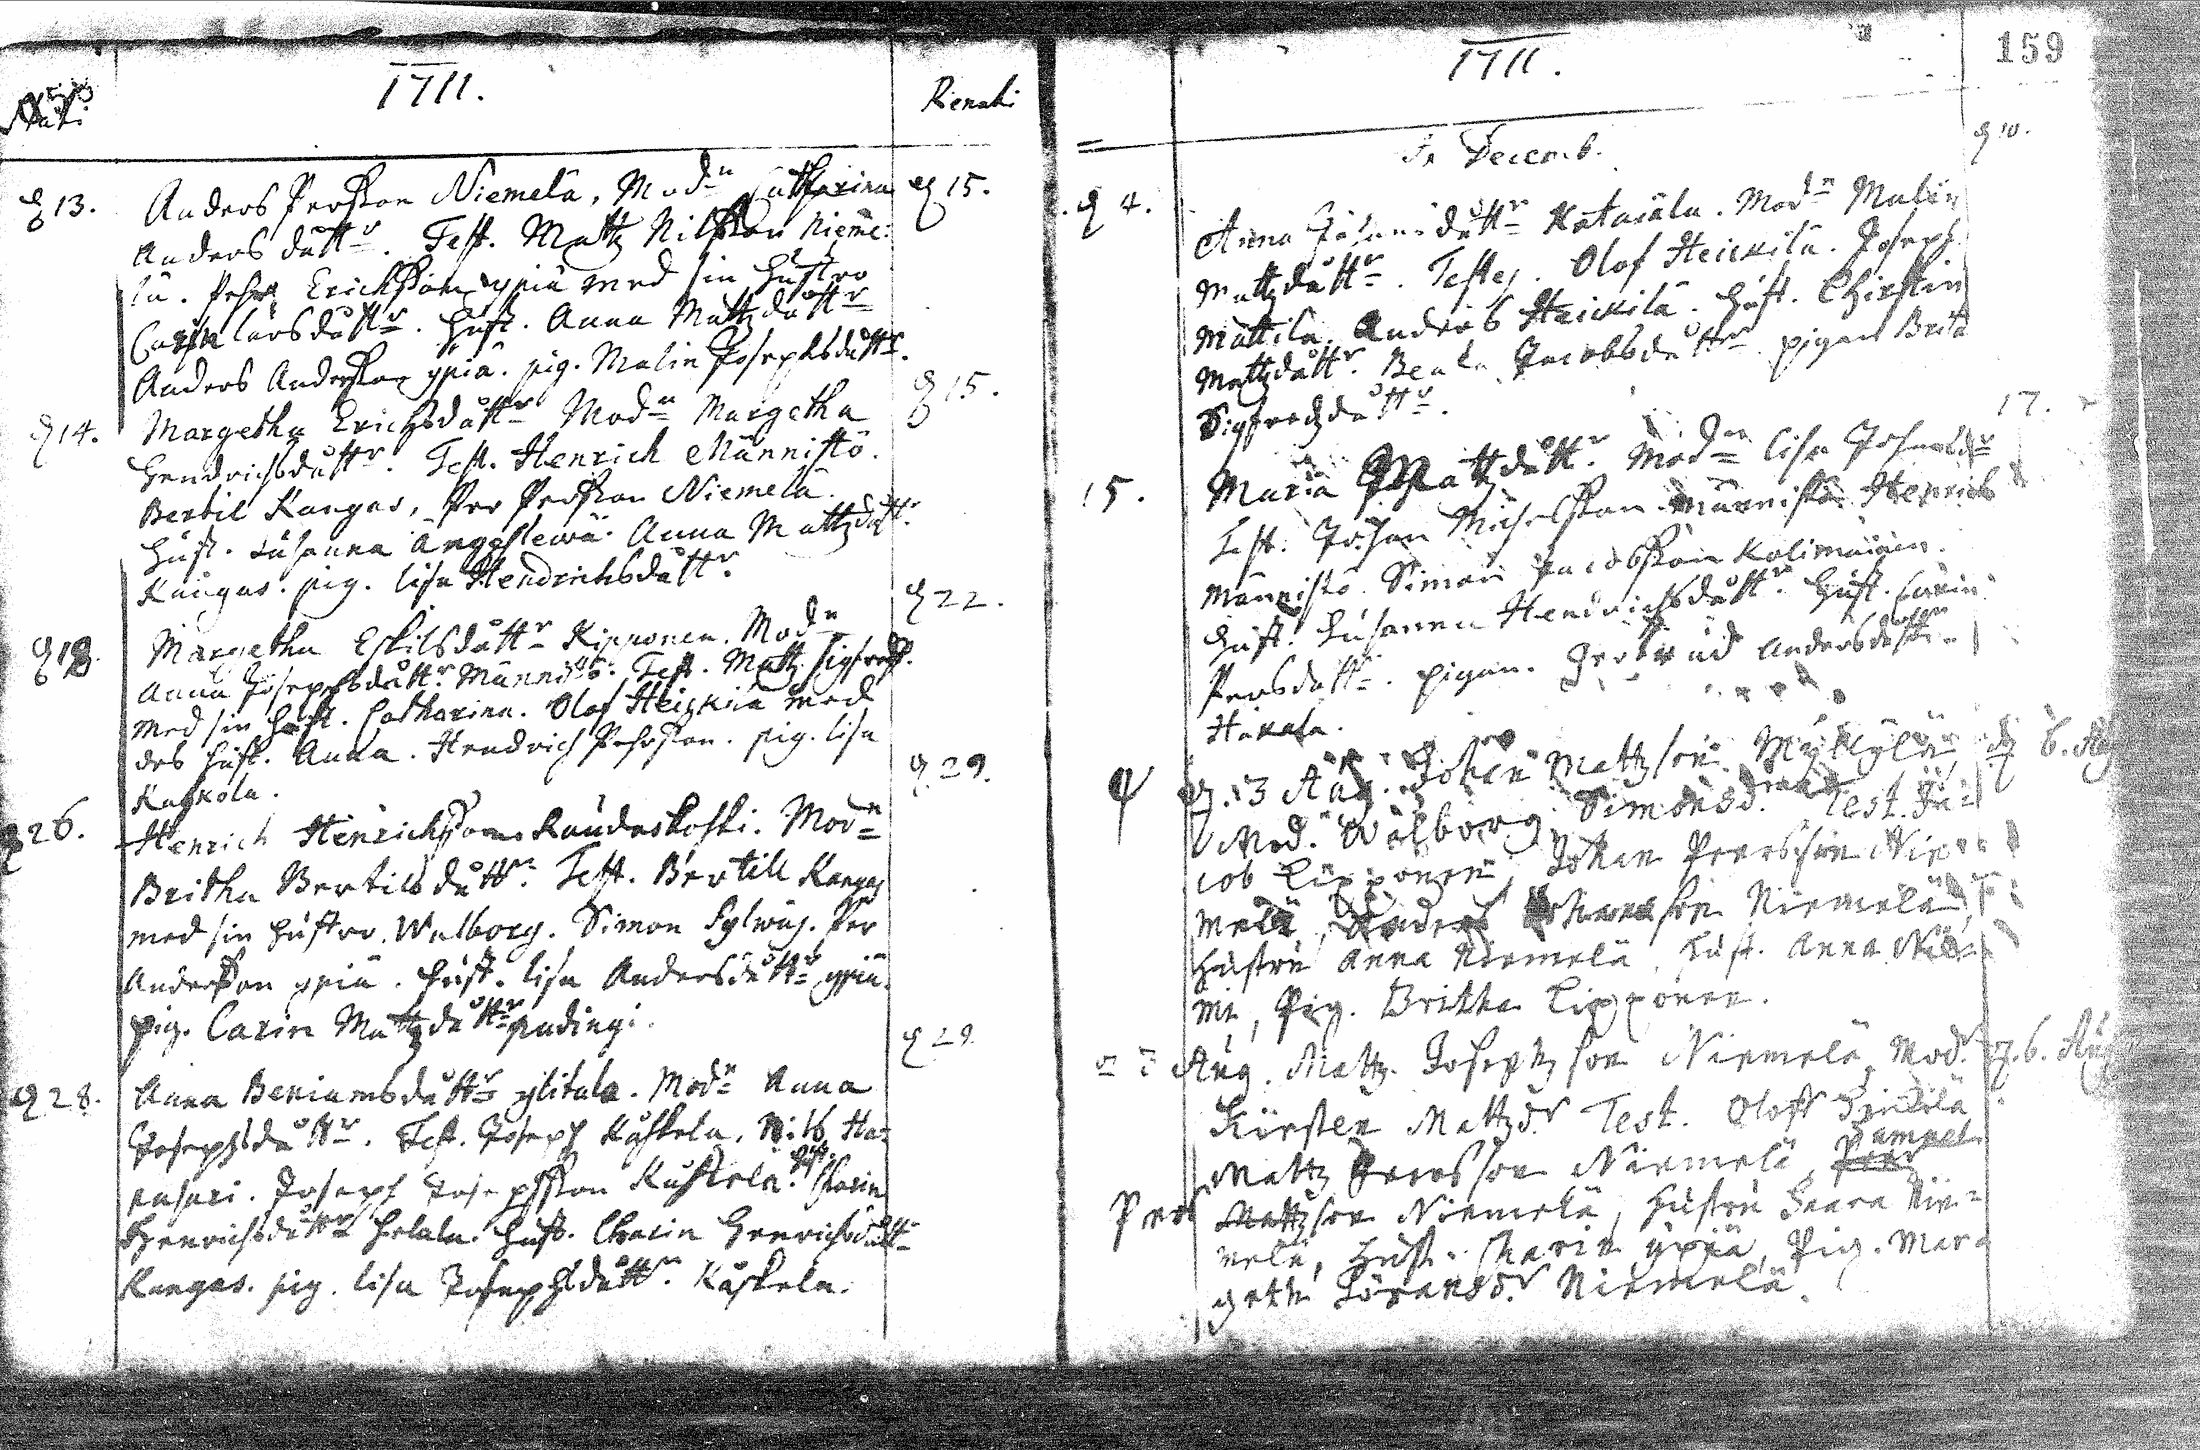 Nati
1711.
Renati
d 13.
Anders Persson Niemelä, Mod:n Catharina
d 15.
Anders dåtter. Test. Mattz Nilsson Nieme:
lä. Pehr Erichsson ypiä med sin hustro
Carin larsdåtter. hust. Anna Mattzdåtter
Anders Andersson ypiä. pig. Malin Josephsdåtter.
d 14.
Margetha Erichsdåtter Mod:n Margetha
d 15.
Hendrichsdåtter. Test. Henrich Männistö.
Bertil Kangas, Per Persson Niemelä.
hust. Susanna Anna Mattzdåtter
Kangas. pig. lisa Hendrichsdåtter.
d 18.
Margetha Eskilsdåtter Kipponen. Mod:n
d 22.
Anna Josephsdåtter Männistö. Test. Mattz Sigfredss.
med sin hust. Catharina. Olof Heickilä med
des hust. Anna. Hendrich Pehrsson. pig. lisa
Kaskola.
d 26.
Henrich Henrichsson Raudaskoski. Mod:n
d 29.
Britha Bertilsdåtter. Test. Bertill Kangas
med sin hustro Walborg. Simon Sylwäj. Per
Andersson ypiä. hust. lisa Andersdåtter ypiä.
pig. Carin Mattzdåtter padingi.
d 28.
Anna Beniamsdåtter ylitalo. Mod:n Anna
d 29
Josephsdåtter. Test. Joseph Käskela, Nils Ha=
Joseph Josephsson Käskela. hust. Karin
Henrichsdåtter hust. Charin Henrichsdåtter
Kangas. pig. lisa Josephsdåtter Käskela.
1711.
159
In Decemb.
d 4.
d 10.
Anna Johansdåtter Katajala. Mod:n Malin
Mattzdåtter. Testes. Olof Heickilä. Joseph
Mattila. Anders Heickilä. hust. Chirstin
Mattzdåtter. Beata Jacobsdåtter. pigan Brita
Sigfredzdåtter.
15.
Maria Mattzdåtter. Mod:n lisa Johansdr
17.
Test. Johan Michelsson Männistö Henrich
Männistö. Simon Jacobsson Kalimainen.
hust. Susanna Hendrichsdåtter. hust. Carin
Persdåtter. pigan. Gertrud Andersdåtter
Hakala.
d. 3 Aug. Johan Mattzson Myllylä
d 6. Aug
Mod. Walborg Simonsd. Test. Ja=
cob Lipponen, Johan Peersson Nie=
melä, Anders Niemelä,
hustru Anna Niemelä, hust. Anna
Pig. Britha Lipponen.
d 3 Aug. Mattz Josephzson Niemelä, Mod.
d. 6. Aug
Kirsten Mattzdr. Test. Oloff
Mattz Peersson Niemelä,
Peer Mattzson Niemelä, hustru Saara Nie=
melä, hust. Karin ypiä, Pig. Mar=
geta Göransdr. Niemelä.